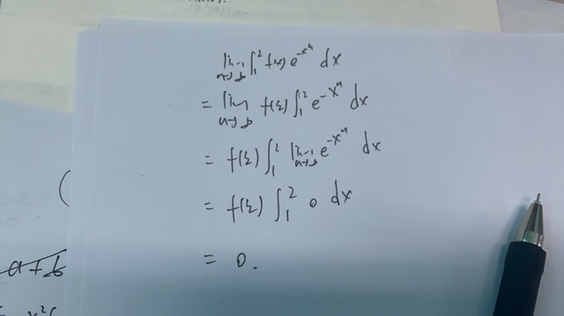 lim n→∞ ∫₁² f(x) e^{-xⁿ} dx
= lim n→∞ f(ξ) ∫₁² e^{-xⁿ} dx
= f(ξ) ∫₁² lim n→∞ e^{-xⁿ} dx
= f(ξ) ∫₁² 0 dx
= 0.
(
a+b